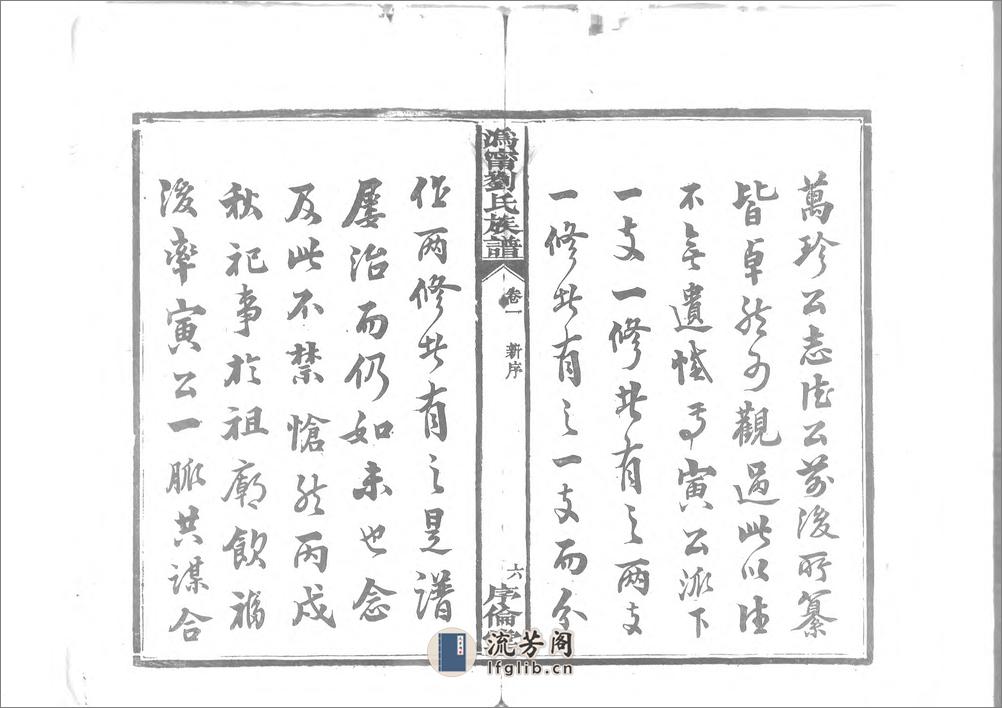 萬珍公志佳公前後所纂
皆卓然可觀過此以往
不無遺憾焉寅公派下
一支一修者有之兩支
一修者有之一支而分
作兩修者有之是譜
屢治而仍如未也念
及此不禁愴然丙戌
秋祀事於祖廟飲福
後率寅公一脈共謀合
溈甯劉氏族譜
卷一
新序
六
序倫堂
流芳阁
lfglib.cn